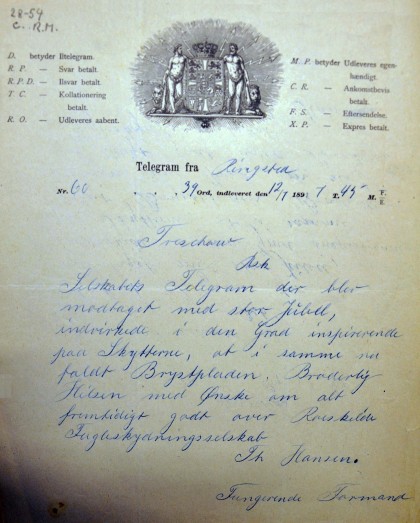 28-54
C. R.M.
D. betyder Iltelegram.
R. P. — Svar betalt.
R. P. D. — Ilsvar betalt.
T. C. — Kollationering betalt.
R. O. — Udleveres aabent.
M. P. betyder Udleveres egenhændigt.
C. R. — Ankomstbevis betalt.
F. S. — Eftersendelse.
X. P. — Expres betalt.
Telegram fra Ringsted
Nr. 60 39 Ord, indleveret den 12/7 189 T. 45 M. F. E.
Treschow
Ask
Selskabets Telegram der blev
modtaget med stor Jubel,
indvirkede i den Grad inspirerende
paa Skytterne, at i samme nu
faldt Brystpladen. Broderlig
Hilsen med Ønske om alt
fremtidigt godt over Roeskilde
Fugleskydningsselskab
Th Hansen.
Fungerende Formand